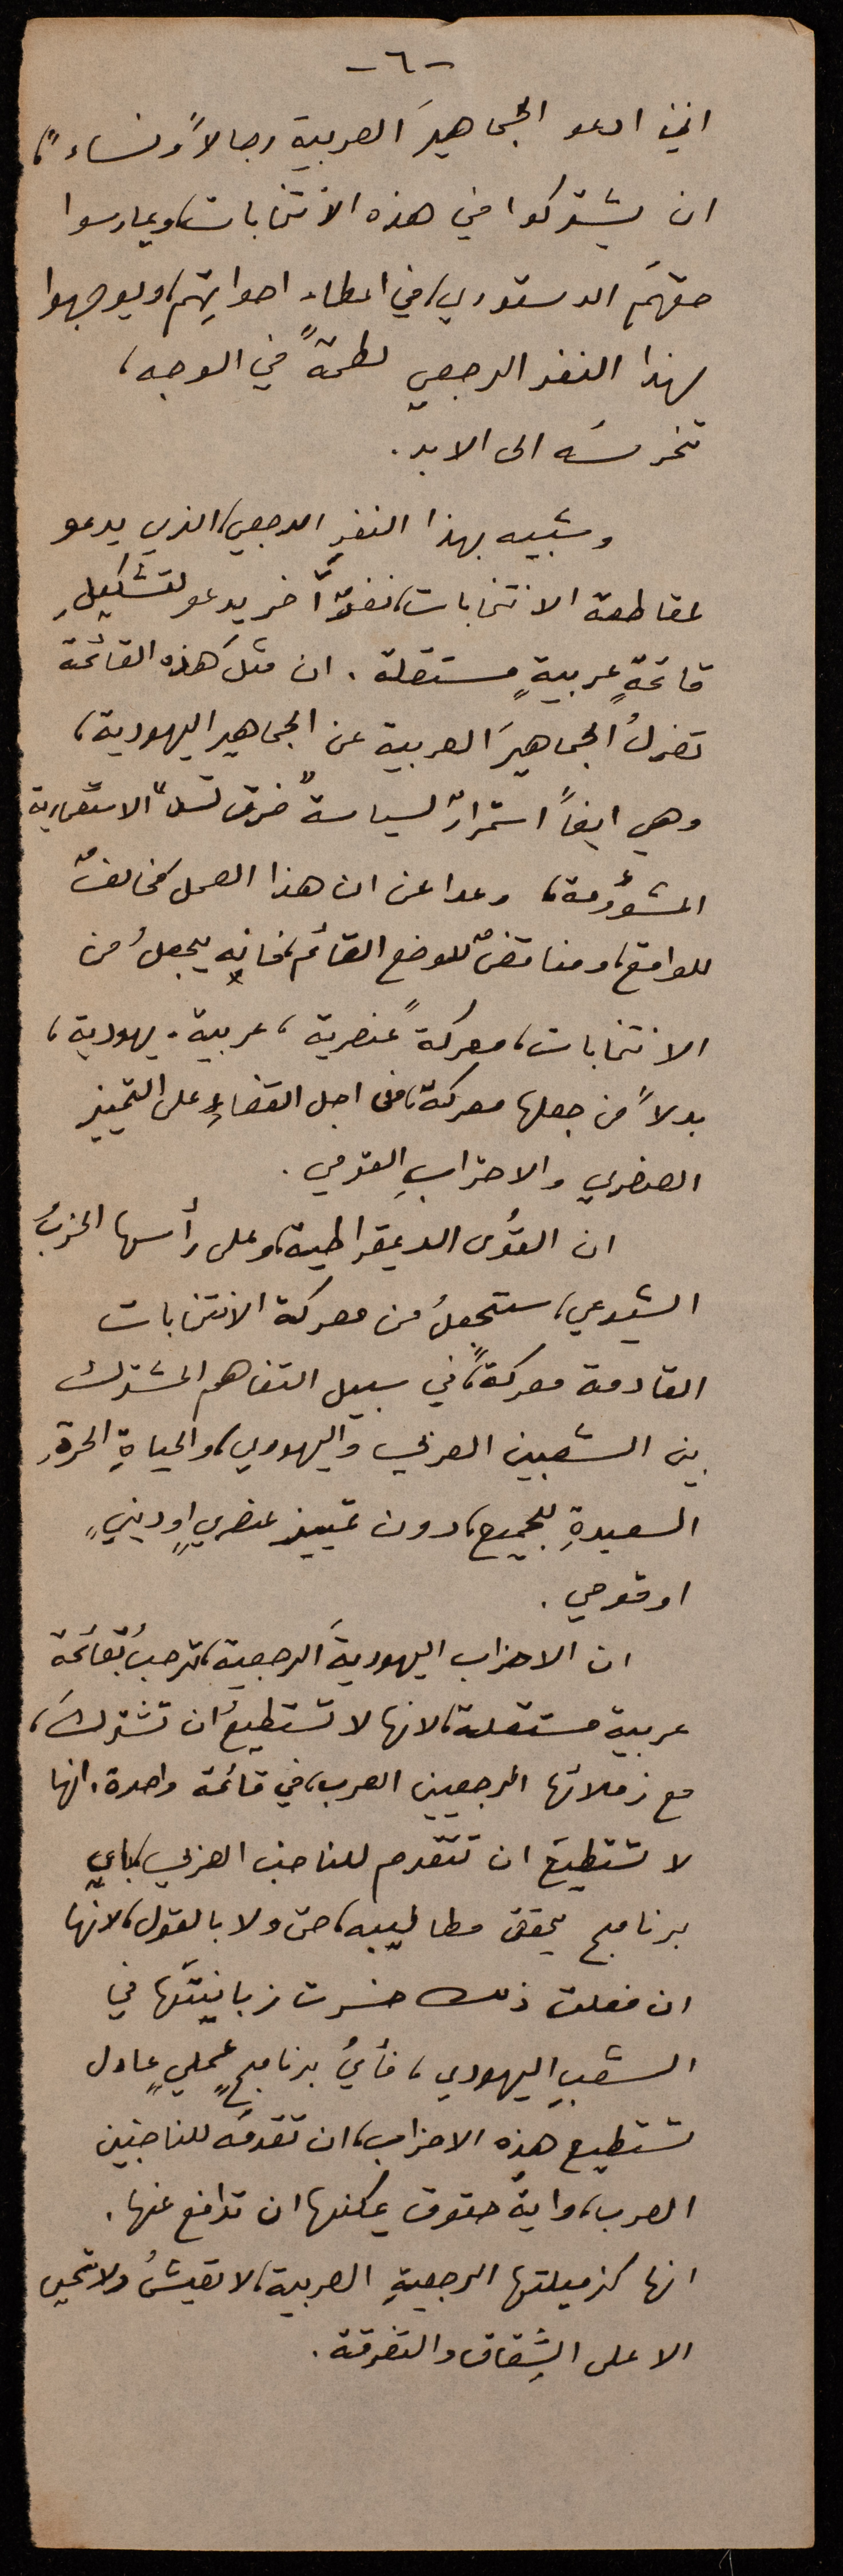 -٦-
انني ادعو الجماهيرَ العربية رجالاً ونساءً،
ان يشتركوا في هذه الانتخابات، ويمارسوا
حقهَم الدستوري، في اعطاء اصواتِهم، ويوجهوا
لهذا النفر الرجعي لطمةً في الوجه،
تخرسَه الى الابد.
وشبيه بهذا النفرِ الرجعي، الذي يدعو
لمقاطعة الانتخابات، نفرٌ آخر يدعو لتشكيلِ
قائمةٍ عربيةٍ مستقلة. ان مثلَ هذه القائمة
تعزلُ الجماهيرَ العربية عن الجماهير اليهودية،
وهي ايضاً استمرارٌ لسياسة "فرق تسد" الاستعمارية
المشؤومة، وعدا عن ان هذا العمل مخالفٌ
للواقع، ومناقضٌ للوضع القائم، فانه يجعلُ من
الانتخابات، معركةً عنصرية، عربية - يهودية،
بدلاً من جعلها معركة، من اجل القضاءِ على التمييز
العنصري والاحترابِ القومي.
ان القوُى الديمقراطية، وعلى رأسها الحزبُ
الشيوعي، ستجعلُ من معركة الانتخابات
القادمة معركةً، في سبيل التفاهم المشترك
بين الشعبين العربي واليهودي، والحياةِ الحرةِ
السعيدةِ للجميع، دون تمييز عنصريٍ او دينيٍ
او قومي.
ان الاحزاب اليهوديةَ الرجعية، ترحبُ بقائمة
عربية مستقلة، لانها لا تستطيعُ ان تشتركَ،
مع زملائها الرجعيين العرب، في قائمة واحدة. انها
لا تستطيع ان تتقدم للناخب العربي، باي
برنامج يحقق مطاليبه، حتى ولا بالقول، لانها
ان فعلت ذلك خسرت زبائنَها في
الشعبِ اليهودي، فأيُ برنامجٍ عمليٍ عادل
تستطيع هذه الاحزاب، ان تقدمَه للناخبين
العرب، وايةُ حقوق يمكنها ان تدافع عنها.
انها كزميلتها الرجعيةِ العربية، لا تعيشُ ولا تحيى
الا على الشِقاق والتفرقة.